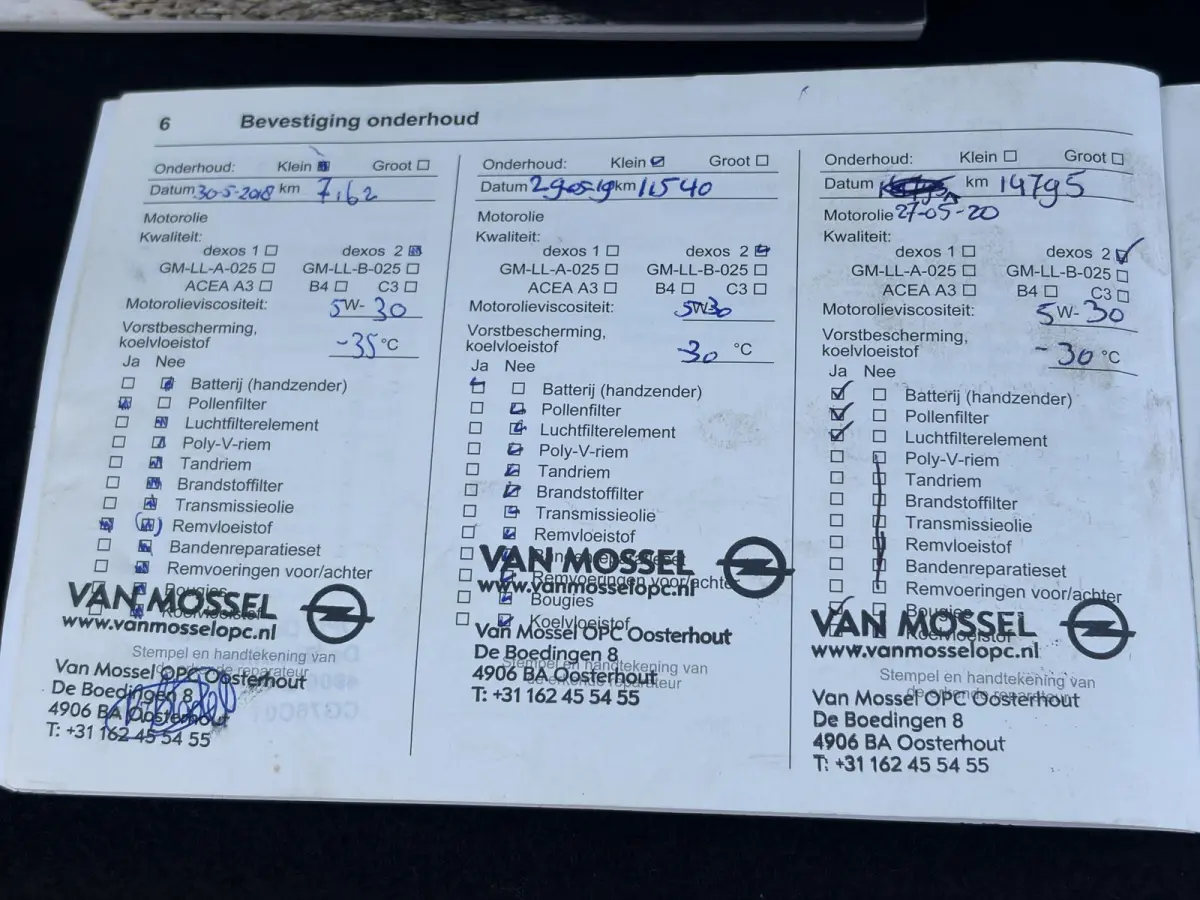 6 Bevestiging onderhoud
Onderhoud: Klein Groot
Datum 30-5-2018 km 7162
Motorolie
Kwaliteit:
dexos 1 dexos 2
GM-LL-A-025 GM-LL-B-025
ACEA A3 B4 C3
Motorolieviscositeit: 5W-30
Vorstbescherming,
koelvloeistof -35 °C
Ja Nee
Batterij (handzender)
Pollenfilter
Luchtfilterelement
Poly-V-riem
Tandriem
Brandstoffilter
Transmissieolie
Remvloeistof
Bandenreparatieset
Remvoeringen voor/achter
Bougies
Koelvloeistof
VAN MOSSEL
www.vanmosselopc.nl
Stempel en handtekening van
de erkende reparateur
Van Mossel OPC Oosterhout
De Boedingen 8
4906 BA Oosterhout
T: +31 162 45 54 55
Onderhoud: Klein Groot
Datum 29-05-19 km 11540
Motorolie
Kwaliteit:
dexos 1 dexos 2
GM-LL-A-025 GM-LL-B-025
ACEA A3 B4 C3
Motorolieviscositeit: 5W30
Vorstbescherming,
koelvloeistof -30 °C
Ja Nee
Batterij (handzender)
Pollenfilter
Luchtfilterelement
Poly-V-riem
Tandriem
Brandstoffilter
Transmissieolie
Remvloeistof
Bandenreparatieset
Remvoeringen voor/achter
Bougies
Koelvloeistof
VAN MOSSEL
www.vanmosselopc.nl
Van Mossel OPC Oosterhout
De Boedingen 8
Stempel en handtekening van
4906 BA Oosterhout
de erkende reparateur
T: +31 162 45 54 55
Onderhoud: Klein Groot
Datum km 14795
Motorolie 27-05-20
Kwaliteit:
dexos 1 dexos 2
GM-LL-A-025 GM-LL-B-025
ACEA A3 B4 C3
Motorolieviscositeit: 5W-30
Vorstbescherming,
koelvloeistof -30 °C
Ja Nee
Batterij (handzender)
Pollenfilter
Luchtfilterelement
Poly-V-riem
Tandriem
Brandstoffilter
Transmissieolie
Remvloeistof
Bandenreparatieset
Remvoeringen voor/achter
Bougies
Koelvloeistof
VAN MOSSEL
www.vanmosselopc.nl
Stempel en handtekening van
de erkende reparateur
Van Mossel OPC Oosterhout
De Boedingen 8
4906 BA Oosterhout
T: +31 162 45 54 55